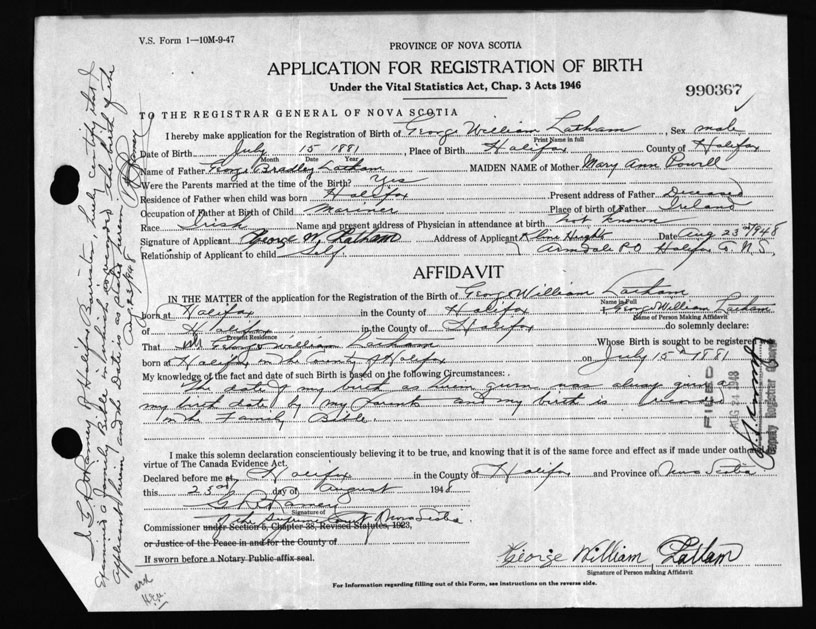 V.S. Form 1—10M-9-47
PROVINCE OF NOVA SCOTIA
APPLICATION FOR REGISTRATION OF BIRTH
Under the Vital Statistics Act, Chap. 3 Acts 1946
990367
TO THE REGISTRAR GENERAL OF NOVA SCOTIA
I hereby make application for the Registration of Birth of George William Latham, Sex male
Print Name in full
Date of Birth July 15 1881, Place of Birth Halifax County of Halifax
Month Date Year
Name of Father George Bradley Latham MAIDEN NAME of Mother Mary Ann Powell
Were the Parents married at the time of the Birth? Yes
Residence of Father when child was born Halifax Present address of Father Deceased
Occupation of Father at Birth of Child Mariner Place of birth of Father Ireland
Race Irish Name and present address of Physician in attendance at birth not known
Signature of Applicant George W. Latham Address of Applicant Kline Heights Date Aug 23 1948
Relationship of Applicant to child Self Armdale P.O. Halifax Co. N.S.
AFFIDAVIT
IN THE MATTER of the application for the Registration of the Birth of George William Latham
Name in Full
born at Halifax in the County of Halifax I George William Latham
Name of Person Making Affidavit
of Halifax in the County of Halifax do solemnly declare:
Present Residence
That George William Latham Whose Birth is sought to be registered
born at Halifax in the County of Halifax on July 15th 1881
My knowledge of the fact and date of such Birth is based on the following Circumstances:
The date of my birth as herein given was always given as
my birth date by my parents and my birth is recorded
in the Family Bible.
FILED
AUG 24 1948
Deputy Registrar General
I make this solemn declaration conscientiously believing it to be true, and knowing that it is of the same force and effect as if made under oath
virtue of The Canada Evidence Act.
Declared before me at Halifax in the County of Halifax and Province of Nova Scotia
this 23rd day of August 1948
Signature of
Commissioner under Section 5, Chapter 38, Revised Statutes, 1923, of the Supreme Court Nova Scotia
or Justice of the Peace in and for the County of
If sworn before a Notary Public affix seal.
George William Latham
Signature of Person making Affidavit
For Information regarding filling out of this Form, see instructions on the reverse side.
of Halifax Barrister, hereby certify that I
examined a Family Bible in which is recorded the birth of the
applicant herein and the date is as stated herein
Aug 23 1948